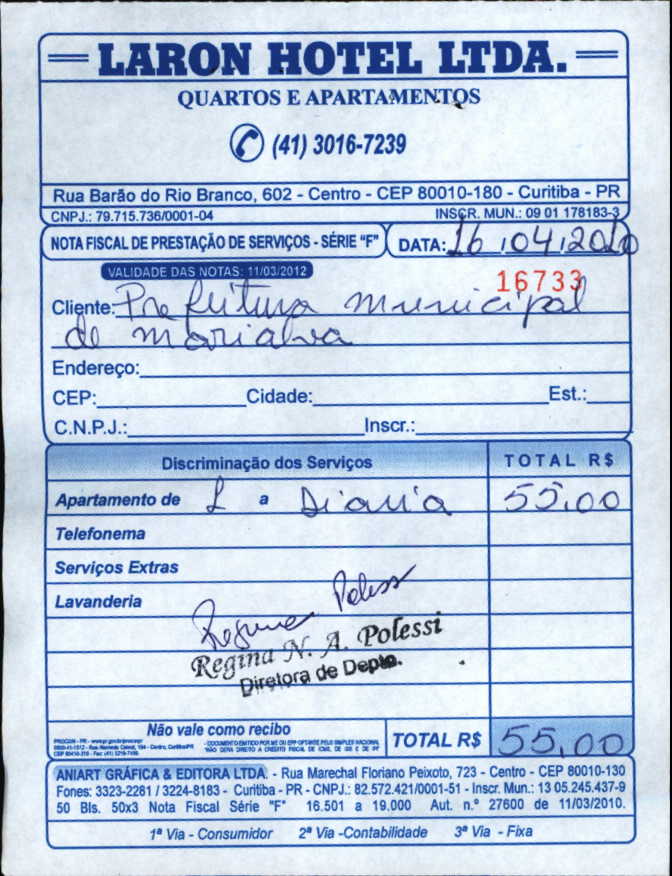 LARON HOTEL LTDA.
QUARTOS E APARTAMENTOS
(41) 3016-7239
Rua Barão do Rio Branco, 602 - Centro - CEP 80010-180 - Curitiba - PR
CNPJ.: 79.715.736/0001-04 INSCR. MUN.: 09 01 178183-3
NOTA FISCAL DE PRESTAÇÃO DE SERVIÇOS - SÉRIE "F" DATA: 16 / 04 / 2010
VALIDADE DAS NOTAS: 11/03/2012 16733
Cliente: Prefeitura municipal
de marialva
Endereço:
CEP: Cidade: Est.:
C.N.P.J.: Inscr.:
Discriminação dos Serviços TOTAL R$
Apartamento de 1 a Diaria 55,00
Telefonema
Serviços Extras
Lavanderia
Regina Polessi
Regina N. A. Polessi
Diretora de Depto.
Não vale como recibo
PROCON - PR - www.pr.gov.br/proconpr
0800-41-1512 - Rua Alameda Cabral, 184 - Centro, Curitiba/PR
- DOCUMENTO EMITIDO POR ME OU EPP OPTANTE PELO SIMPLES NACIONAL
TOTAL R$ 55,00
ANIART GRÁFICA & EDITORA LTDA. - Rua Marechal Floriano Peixoto, 723 - Centro - CEP 80010-130
Fones: 3323-2281 / 3224-8183 - Curitiba - PR - CNPJ.: 82.572.421/0001-51 - Inscr. Mun.: 13 05.245.437-9
50 Bls. 50x3 Nota Fiscal Série "F" 16.501 a 19.000 Aut. n.º 27600 de 11/03/2010.
1ª Via - Consumidor 2ª Via -Contabilidade 3ª Via - Fixa